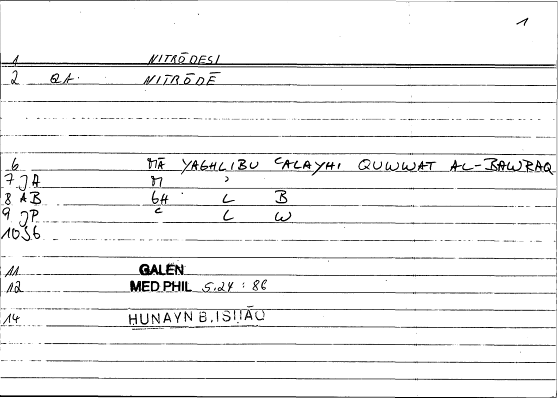 1
1 NITRŌDESI
2 QA. NITRŌDĒ
6 MĀ YAGHLIBU ʿALAYHI QUWWAT AL-BAWRAQ
7 JA M ʾ
8 AB GH L B
9 JP ʿ L W
10 S6
11 GALEN
12 MED.PHIL 5.24 : 86
14 HUNAYN B. ISḤĀQ